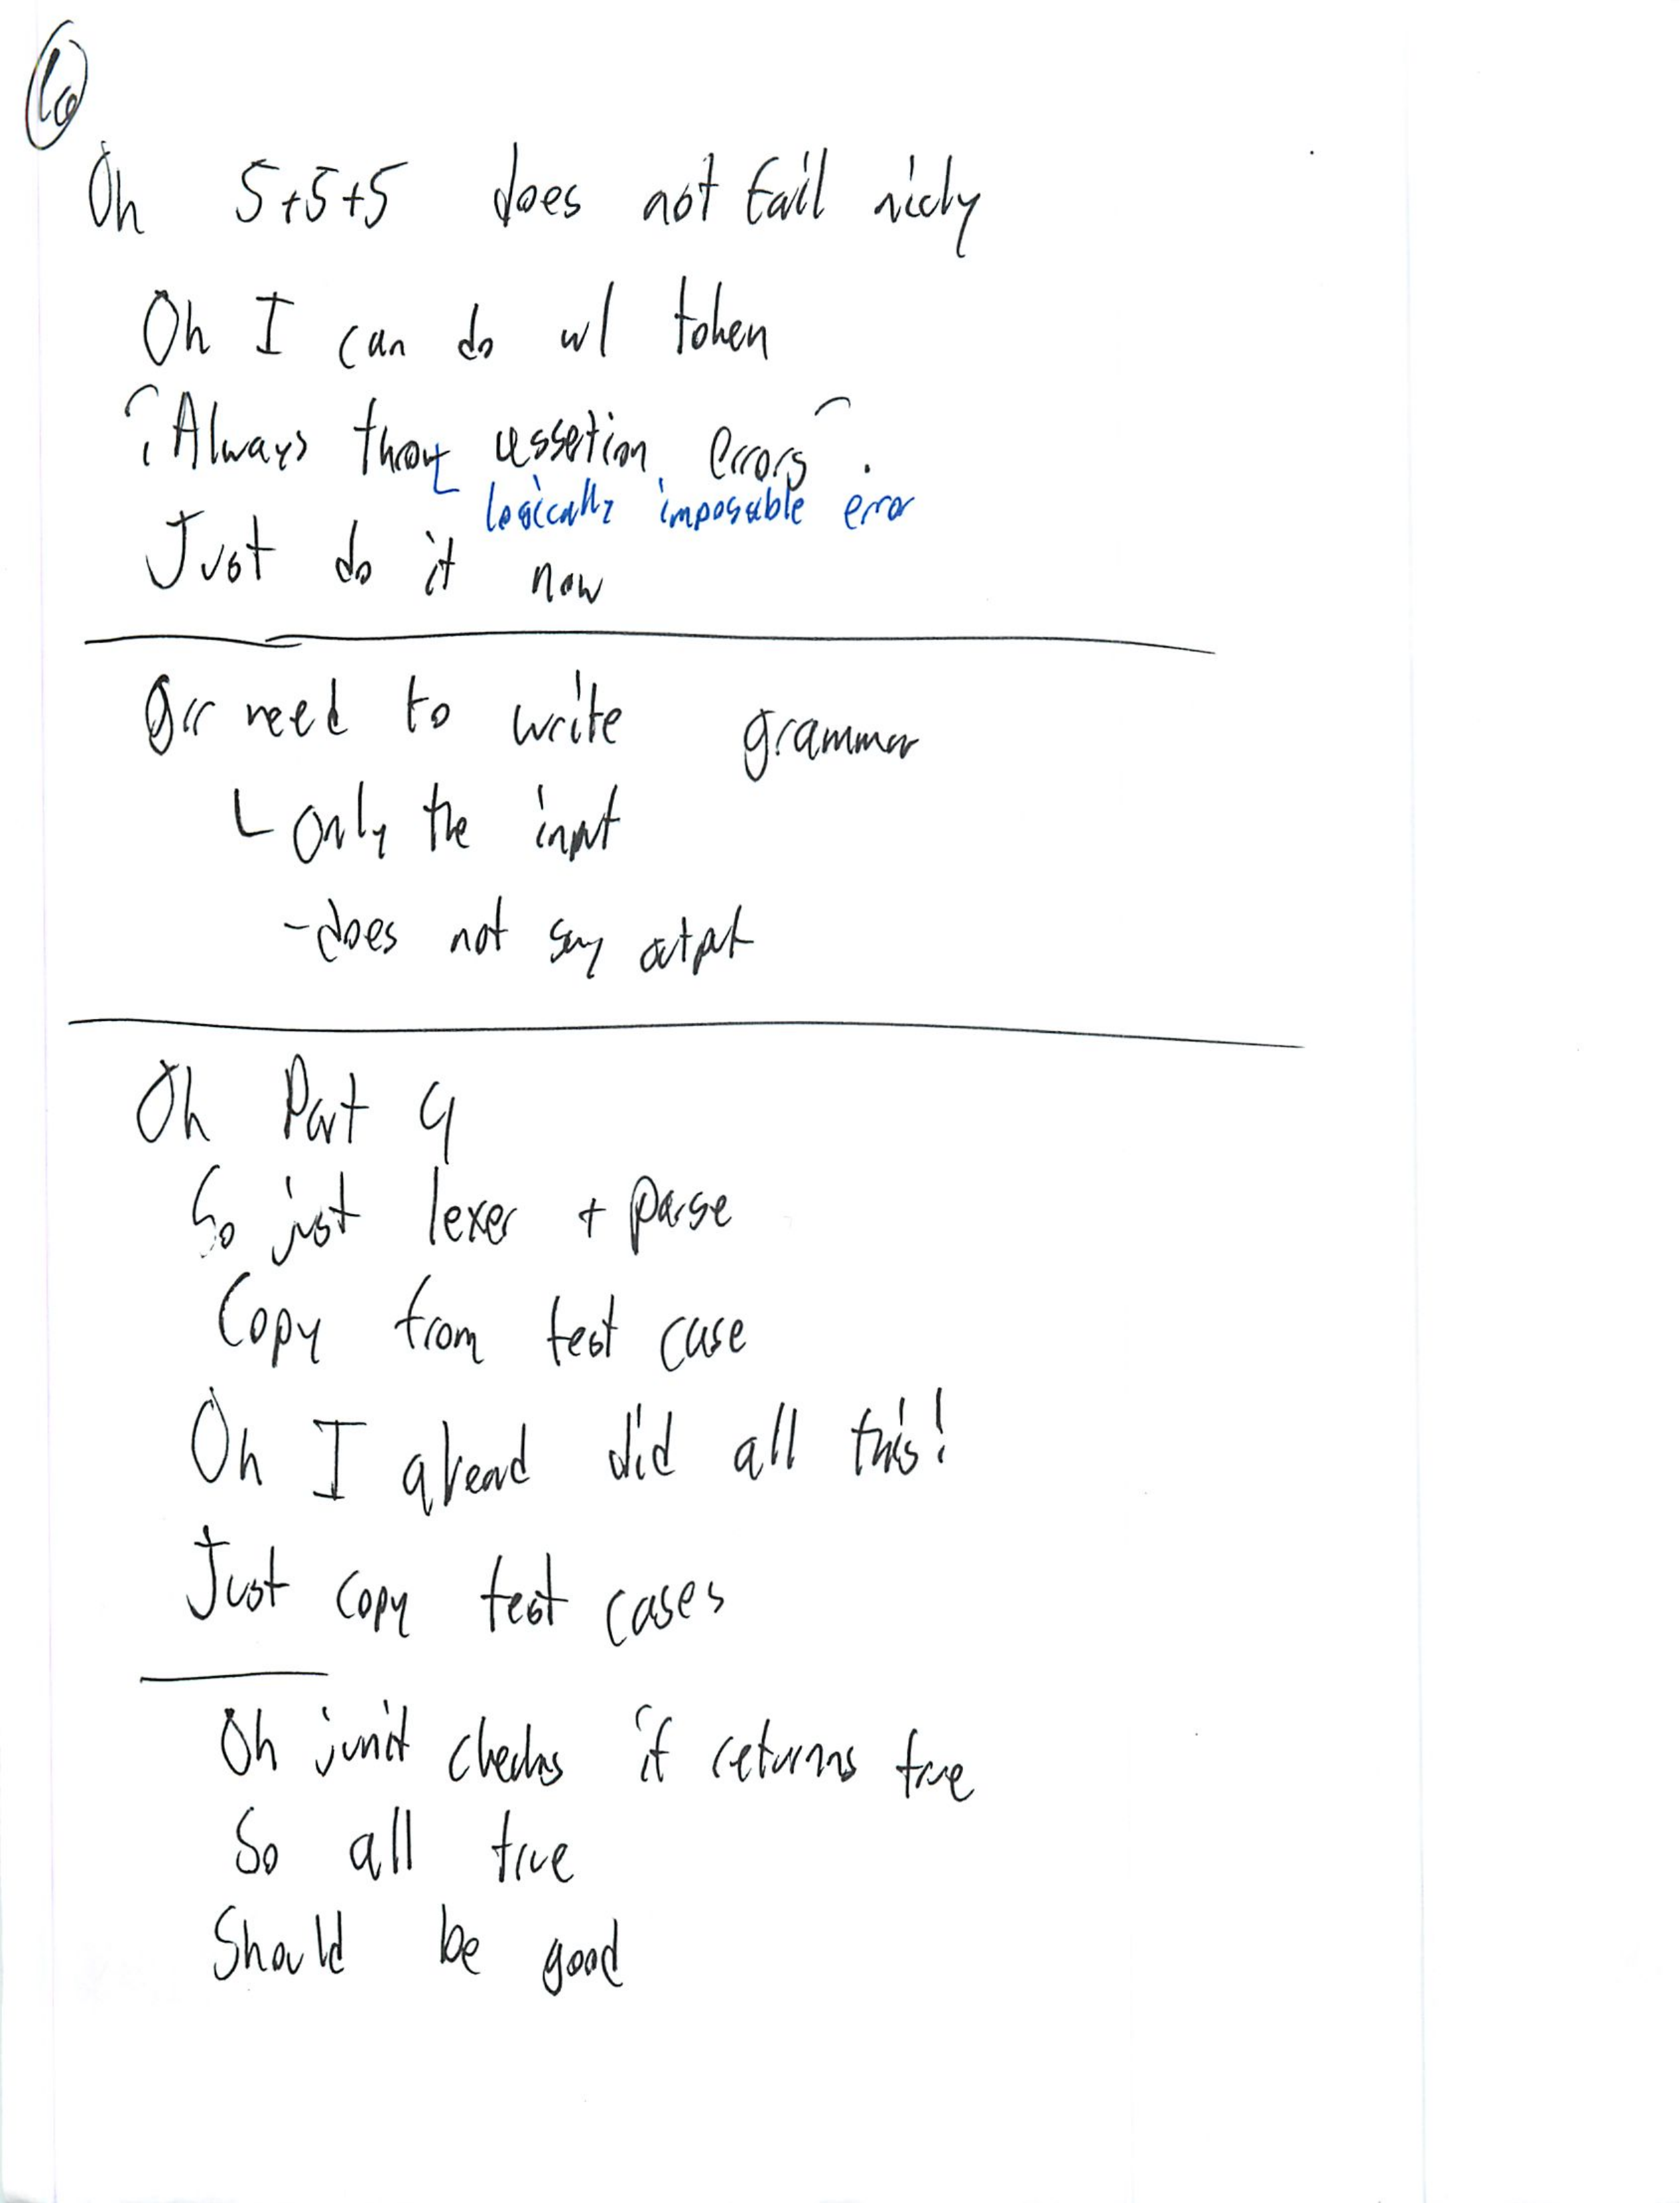 10
Oh 5+5+5 does not fail nicly
Oh I can do w/ token
Always throw assertion errors.
logically imposable error
Just do it now
Grr need to write grammar
Only the input
- does not say output
Oh Part 4
So just lexer + parse
Copy from test case
Oh I alread did all this!
Just copy test cases
Oh junit checks if returns true
So all true
Should be good